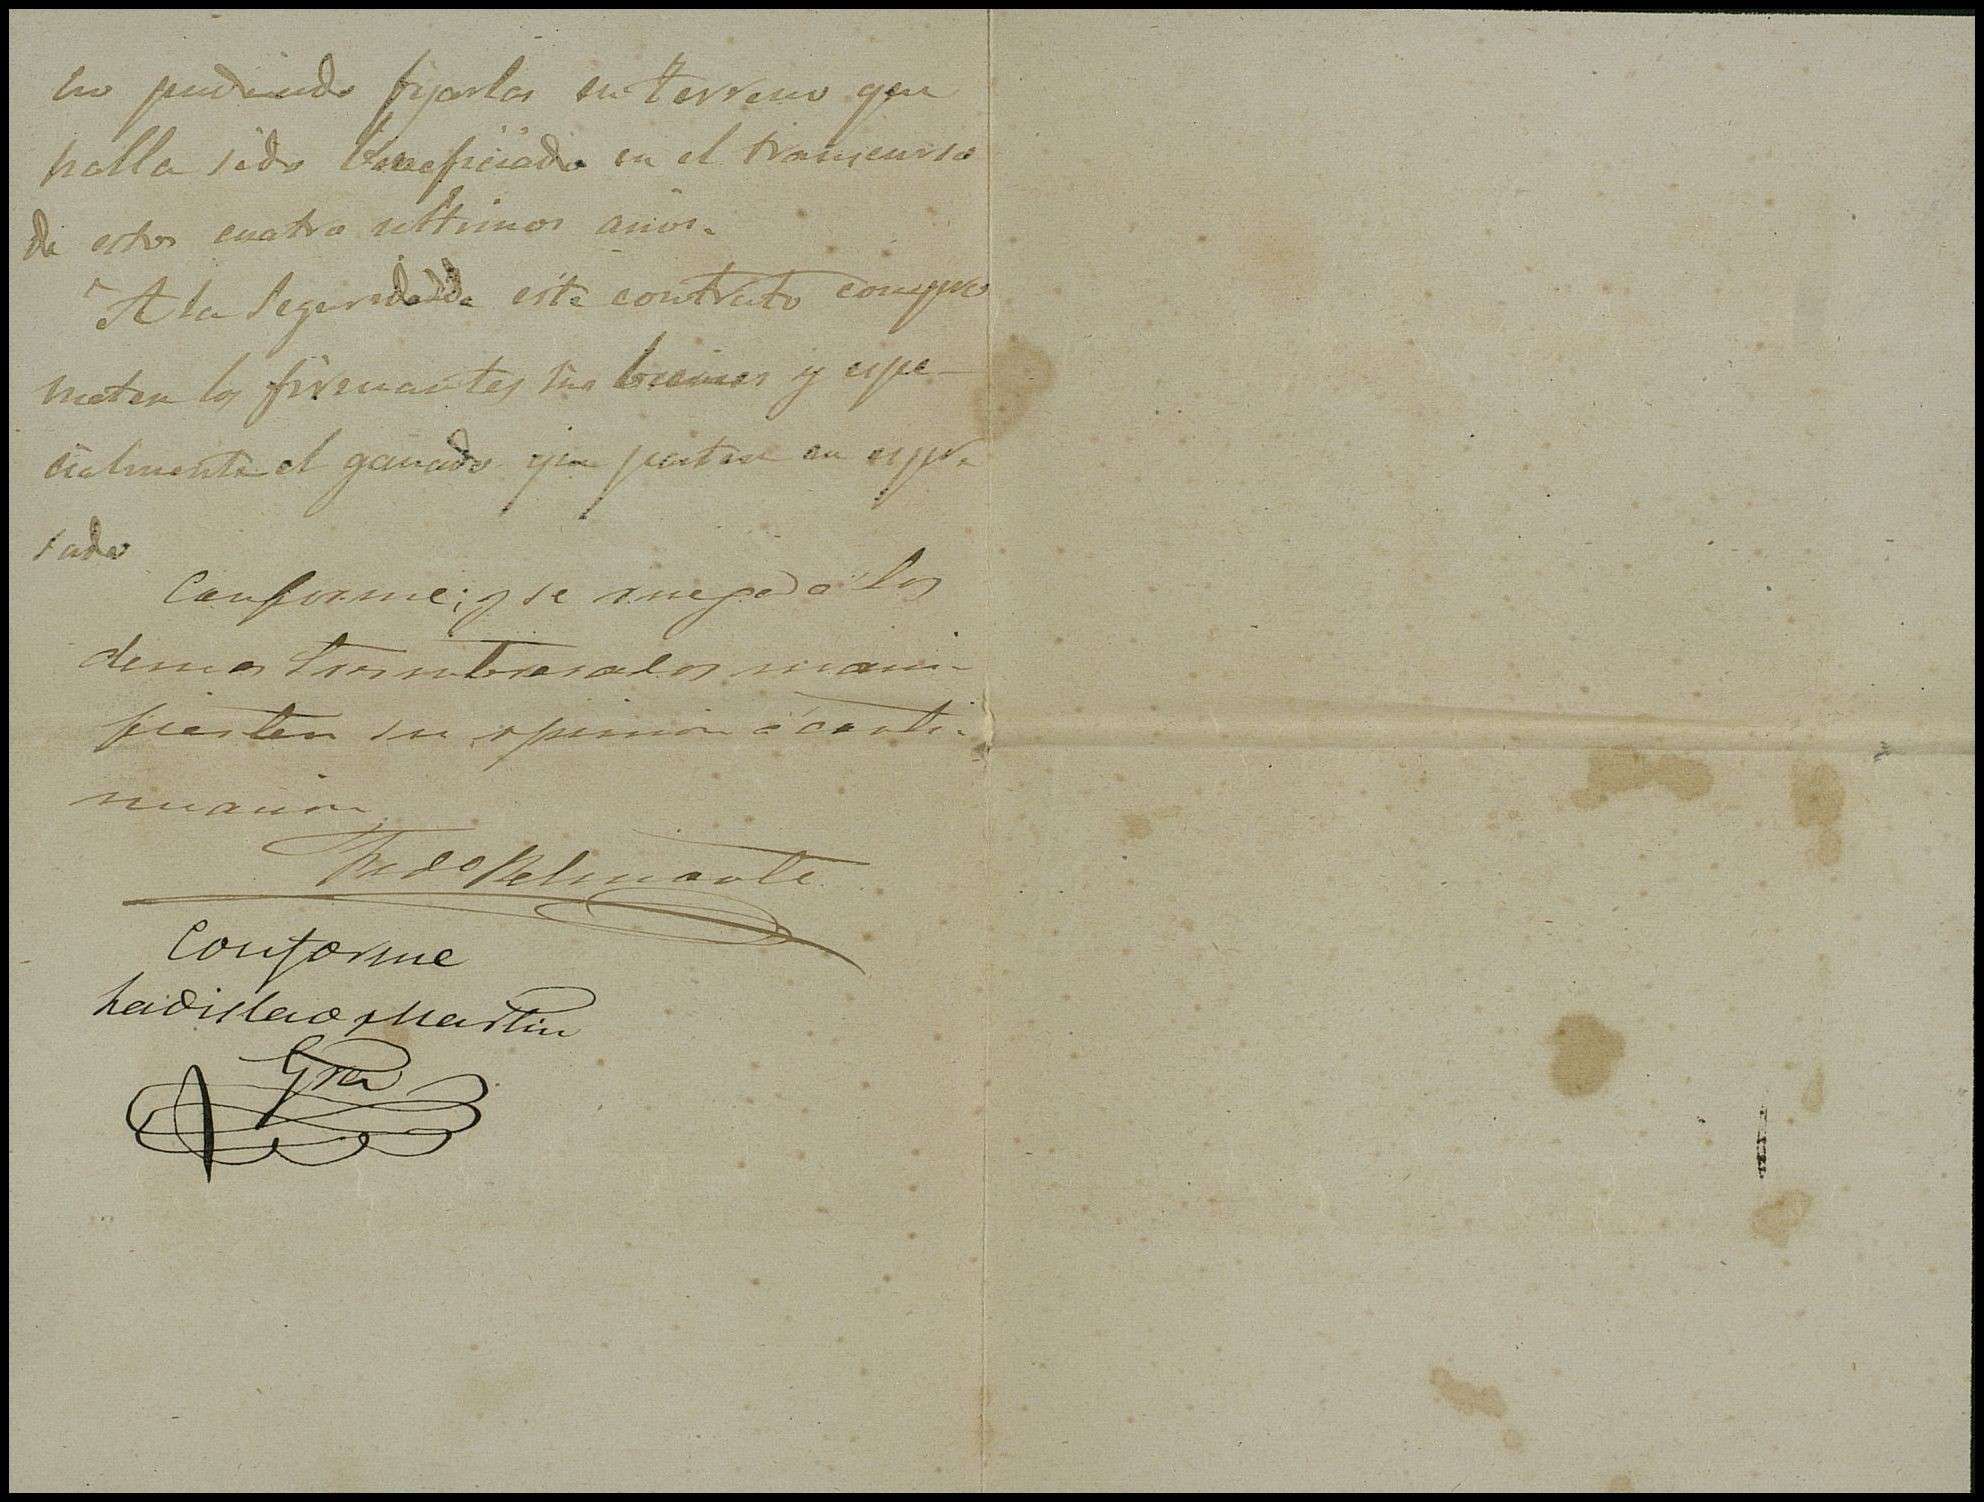 no pudiendo fijarlas en terreno que
halla sido beneficiado en el transcurso
de estos cuatro ultimos años.
A la seguridad de este contrato compro
meten los firmantes sus bienes y espe-
cialmente el ganado que pastase en espre
sado
Conforme; y se ruega á los
demas mani-
fiesten su opinion á conti-
nuacion
Fedo Belmonte
Conforme
Ladislao Martin
Gra